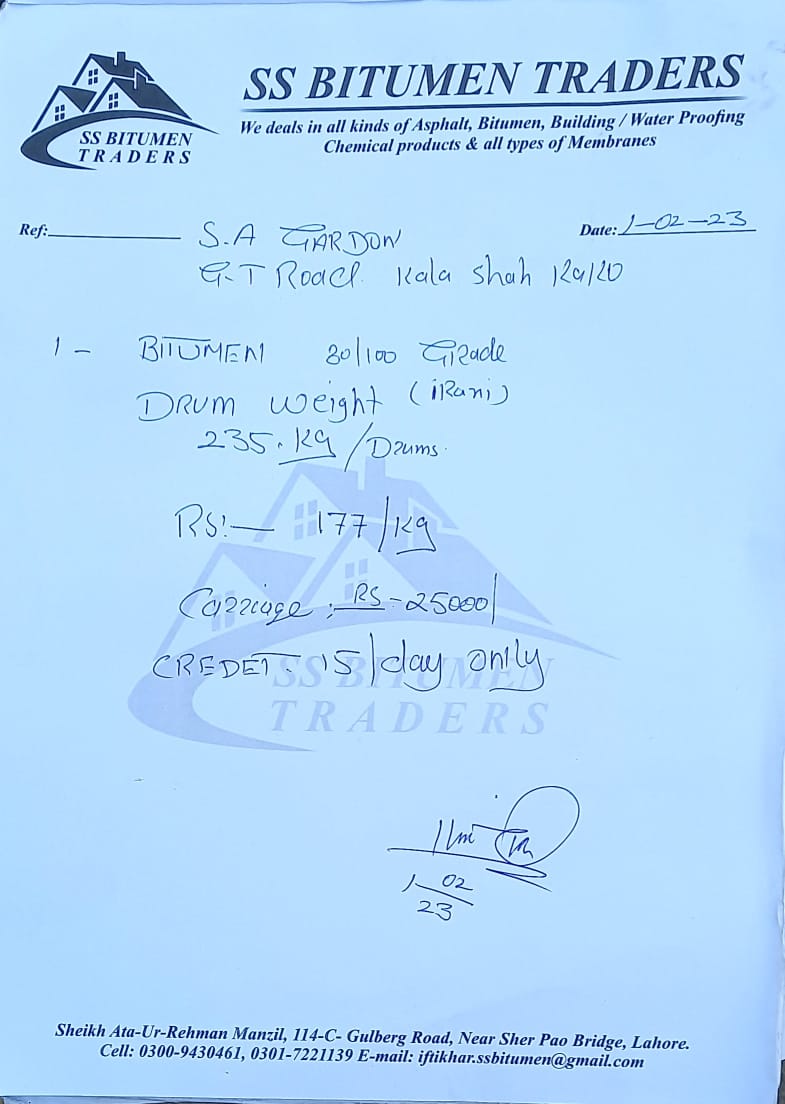 SS BITUMEN
TRADERS
SS BITUMEN TRADERS
We deals in all kinds of Asphalt, Bitumen, Building / Water Proofing
Chemical products & all types of Membranes
Ref:
Date: 1-02-23
S.A GARDON
G.T Road. Kala Shah
1 - BITUMEN 80/100 Grade
DRUM weight (iRani)
235.Kg/Drums.
RS:- 177/Kg
Carriage: RS-25000/
CREDET. 15/day only
SS BITUMEN
TRADERS
1-02
23
Sheikh Ata-Ur-Rehman Manzil, 114-C- Gulberg Road, Near Sher Pao Bridge, Lahore.
Cell: 0300-9430461, 0301-7221139 E-mail: iftikhar.ssbitumen@gmail.com